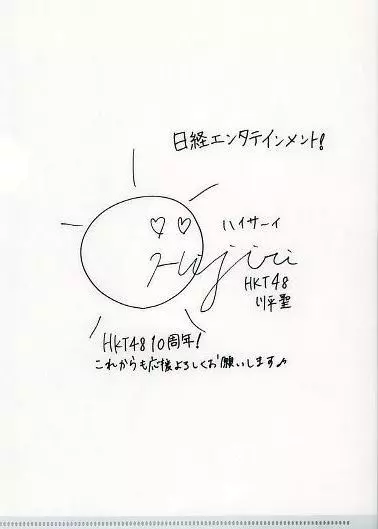 日経エンタテインメント!
ハイサーイ
Hijiri
HKT48
川平聖
HKT48 10周年!
これからも応援よろしくお願いします♪